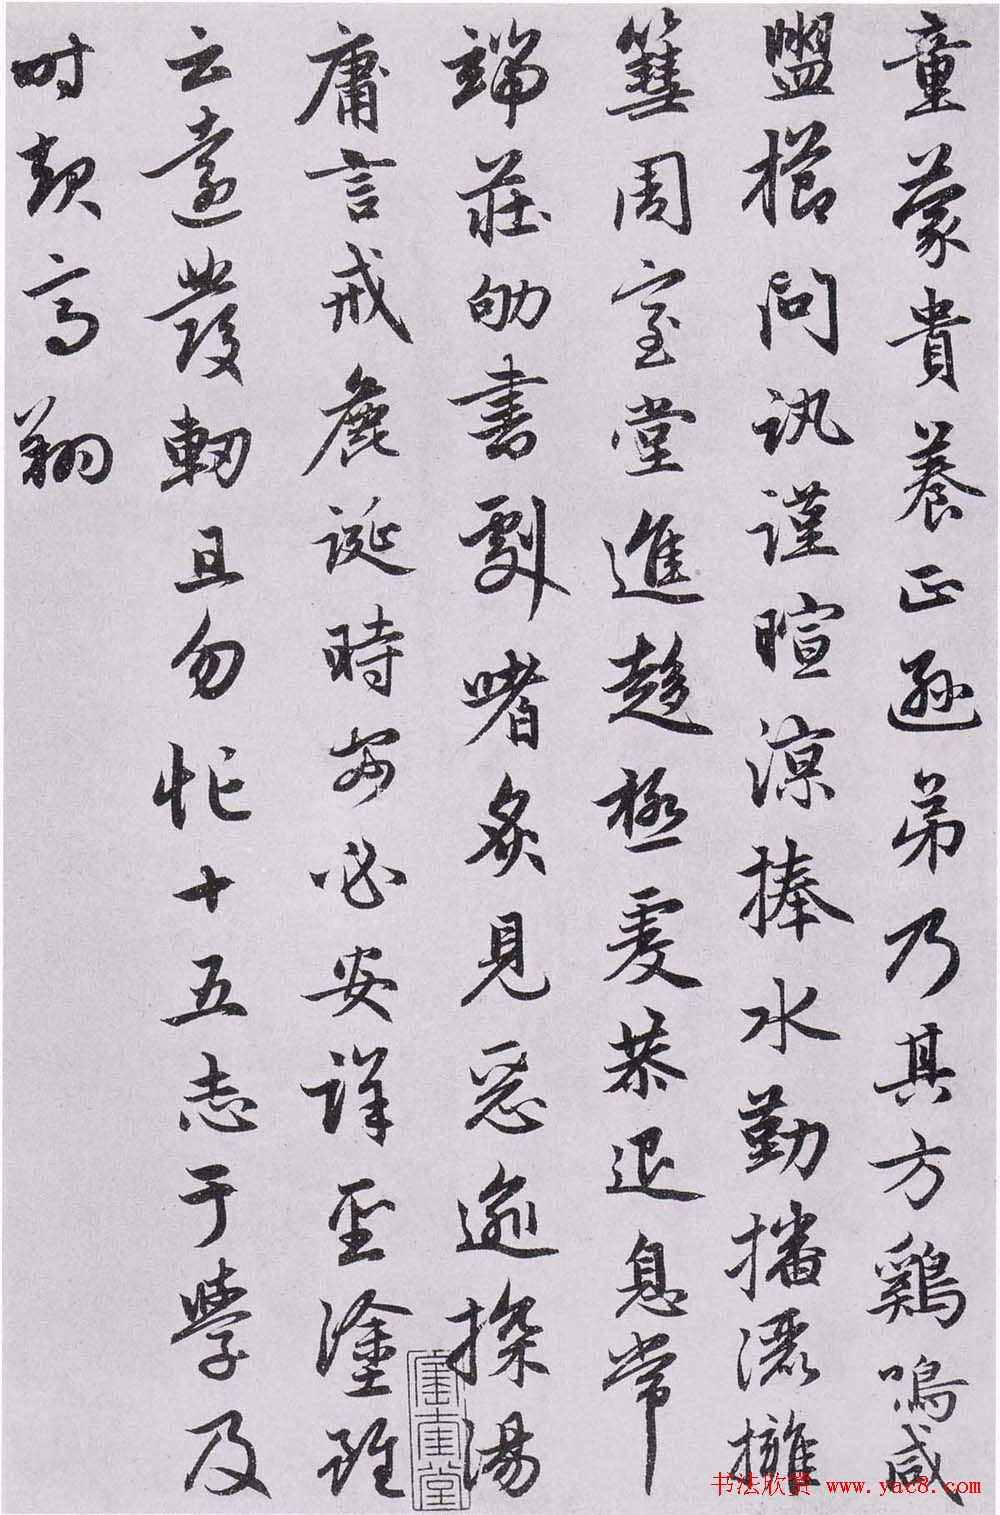 童蒙貴養正遜弟乃其方鷄鳴咸
盥櫛問訊謹暄涼捧水勤播灑擁
篲周室堂進趨極虔恭退息常
端莊劬書劇嗜炙見惡逾探湯
庸言戒麁誕時必安詳聖塗雖
云遠發軔且勿忙十五志于學及
时高翔
书法欣赏 www.yac8.com